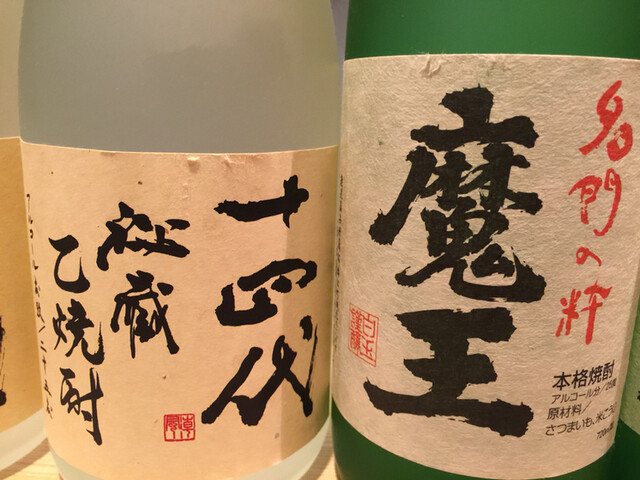 十四代
秘蔵
乙焼酎
名門の粋
魔王
白玉
謹醸
本格焼酎
アルコール分/25度
原材料/
さつまいも、米こうじ